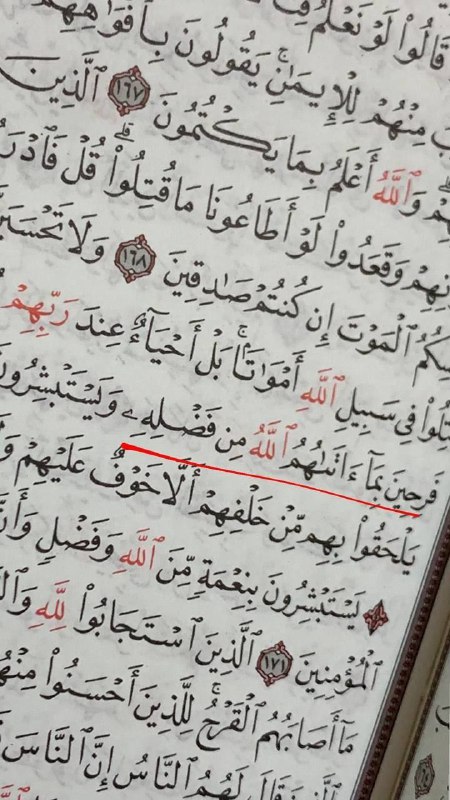 قَالُوا۟ لَوْ نَعْلَمُ
مِنْهُمْ لِلْإِيمَٰنِ ۚ يَقُولُونَ بِأَفْوَٰهِهِم
وَٱللَّهُ أَعْلَمُ بِمَا يَكْتُمُونَ ١٦٧ ٱلَّذِينَ
وَقَعَدُوا۟ لَوْ أَطَاعُونَا مَا قُتِلُوا۟ ۗ قُلْ
ٱلْمَوْتَ إِن كُنتُمْ صَٰدِقِينَ ١٦٨ وَلَا
فِى سَبِيلِ ٱللَّهِ أَمْوَٰتًۢا ۚ بَلْ أَحْيَآءٌ عِندَ رَبِّهِمْ
فَرِحِينَ بِمَآ ءَاتَىٰهُمُ ٱللَّهُ مِن فَضْلِهِۦ وَيَسْتَبْشِرُونَ
يَلْحَقُوا۟ بِهِم مِّنْ خَلْفِهِمْ أَلَّا خَوْفٌ عَلَيْهِمْ
۞ يَسْتَبْشِرُونَ بِنِعْمَةٍ مِّنَ ٱللَّهِ وَفَضْلٍ
ٱلْمُؤْمِنِينَ ١٧١ ٱلَّذِينَ ٱسْتَجَابُوا۟ لِلَّهِ
مَآ أَصَابَهُمُ ٱلْقَرْحُ ۚ لِلَّذِينَ أَحْسَنُوا۟
قَالَ لَهُمُ ٱلنَّاسُ إِنَّ ٱلنَّاسَ